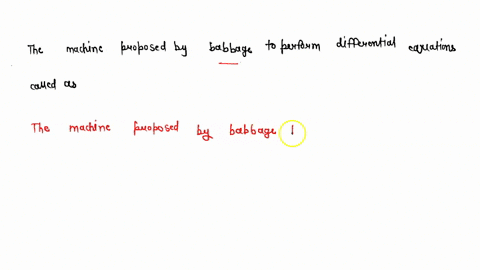 The machine proposed by babbage to perform differential equations
called as
The machine proposed by babbage